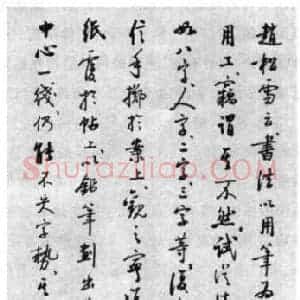 趙松雪云書法以用筆為
用工竊謂不然試從
如八字人字二字三字等
信手擲於案上觀之寧
紙覆於帖上以鉛筆劃出
中心一綫仍能不失字勢
Shufaziliao.com